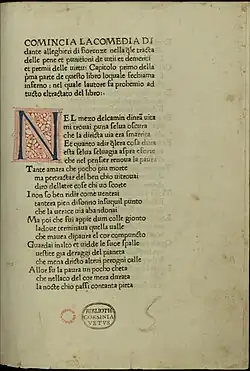 COMINCIA LA COMEDIA DI
dante alleghieri di fiorenze nella q̃le tracta
delle pene et punitioni de uitii et demeriti
et premii delle uirtu: Capitolo primo della
p̃ma parte de questo libro loquale sechiama
inferno: nel quale lautore fa prohemio ad
tucto eltractato del libro:
NEL mezo delcamin dinr̃a uita
mi trouai puna selua oscura
che la diricta uia era smarrita
Et quanto adir q̃lera cosa dura
esta selua seluagia aspra eforte
che nel pensier renoua la paura
Tante amara che pocho piu morte
ma pertractar del ben chio uitrouai
diro dellaltre cose chi uo scorte
I non so ben ridir come uentrai
tantera pien disonno insuquil punto
che la uerace uia abandonai
Ma poi che fui appie dum colle gionto
ladoue terminaua quella ualle
che mauea dipaura el cor compuncto
Guardai inalto et uidde le suoe spalle
uestite gia deraggi del pianeta
che mena dricto altrui perogni calle
Allor fu la paura un pocho cheta
che nellaco del cor mera durata
la nocte chio passi contanta pieta
BIBLIOTH
CORSINIA
VETVS